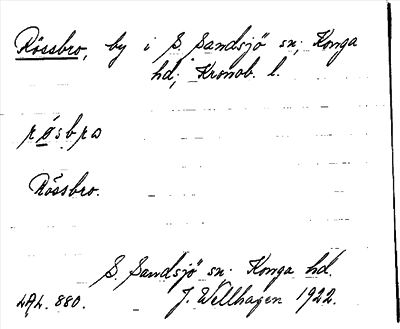 Rössbro, by i S. Sandsjö sn; Konga
hd; Kronob. l.
rösbro
Rössbro.
S. Sandsjö sn. Konga hd.
LAL. 880. J. Wellhagen 1922.